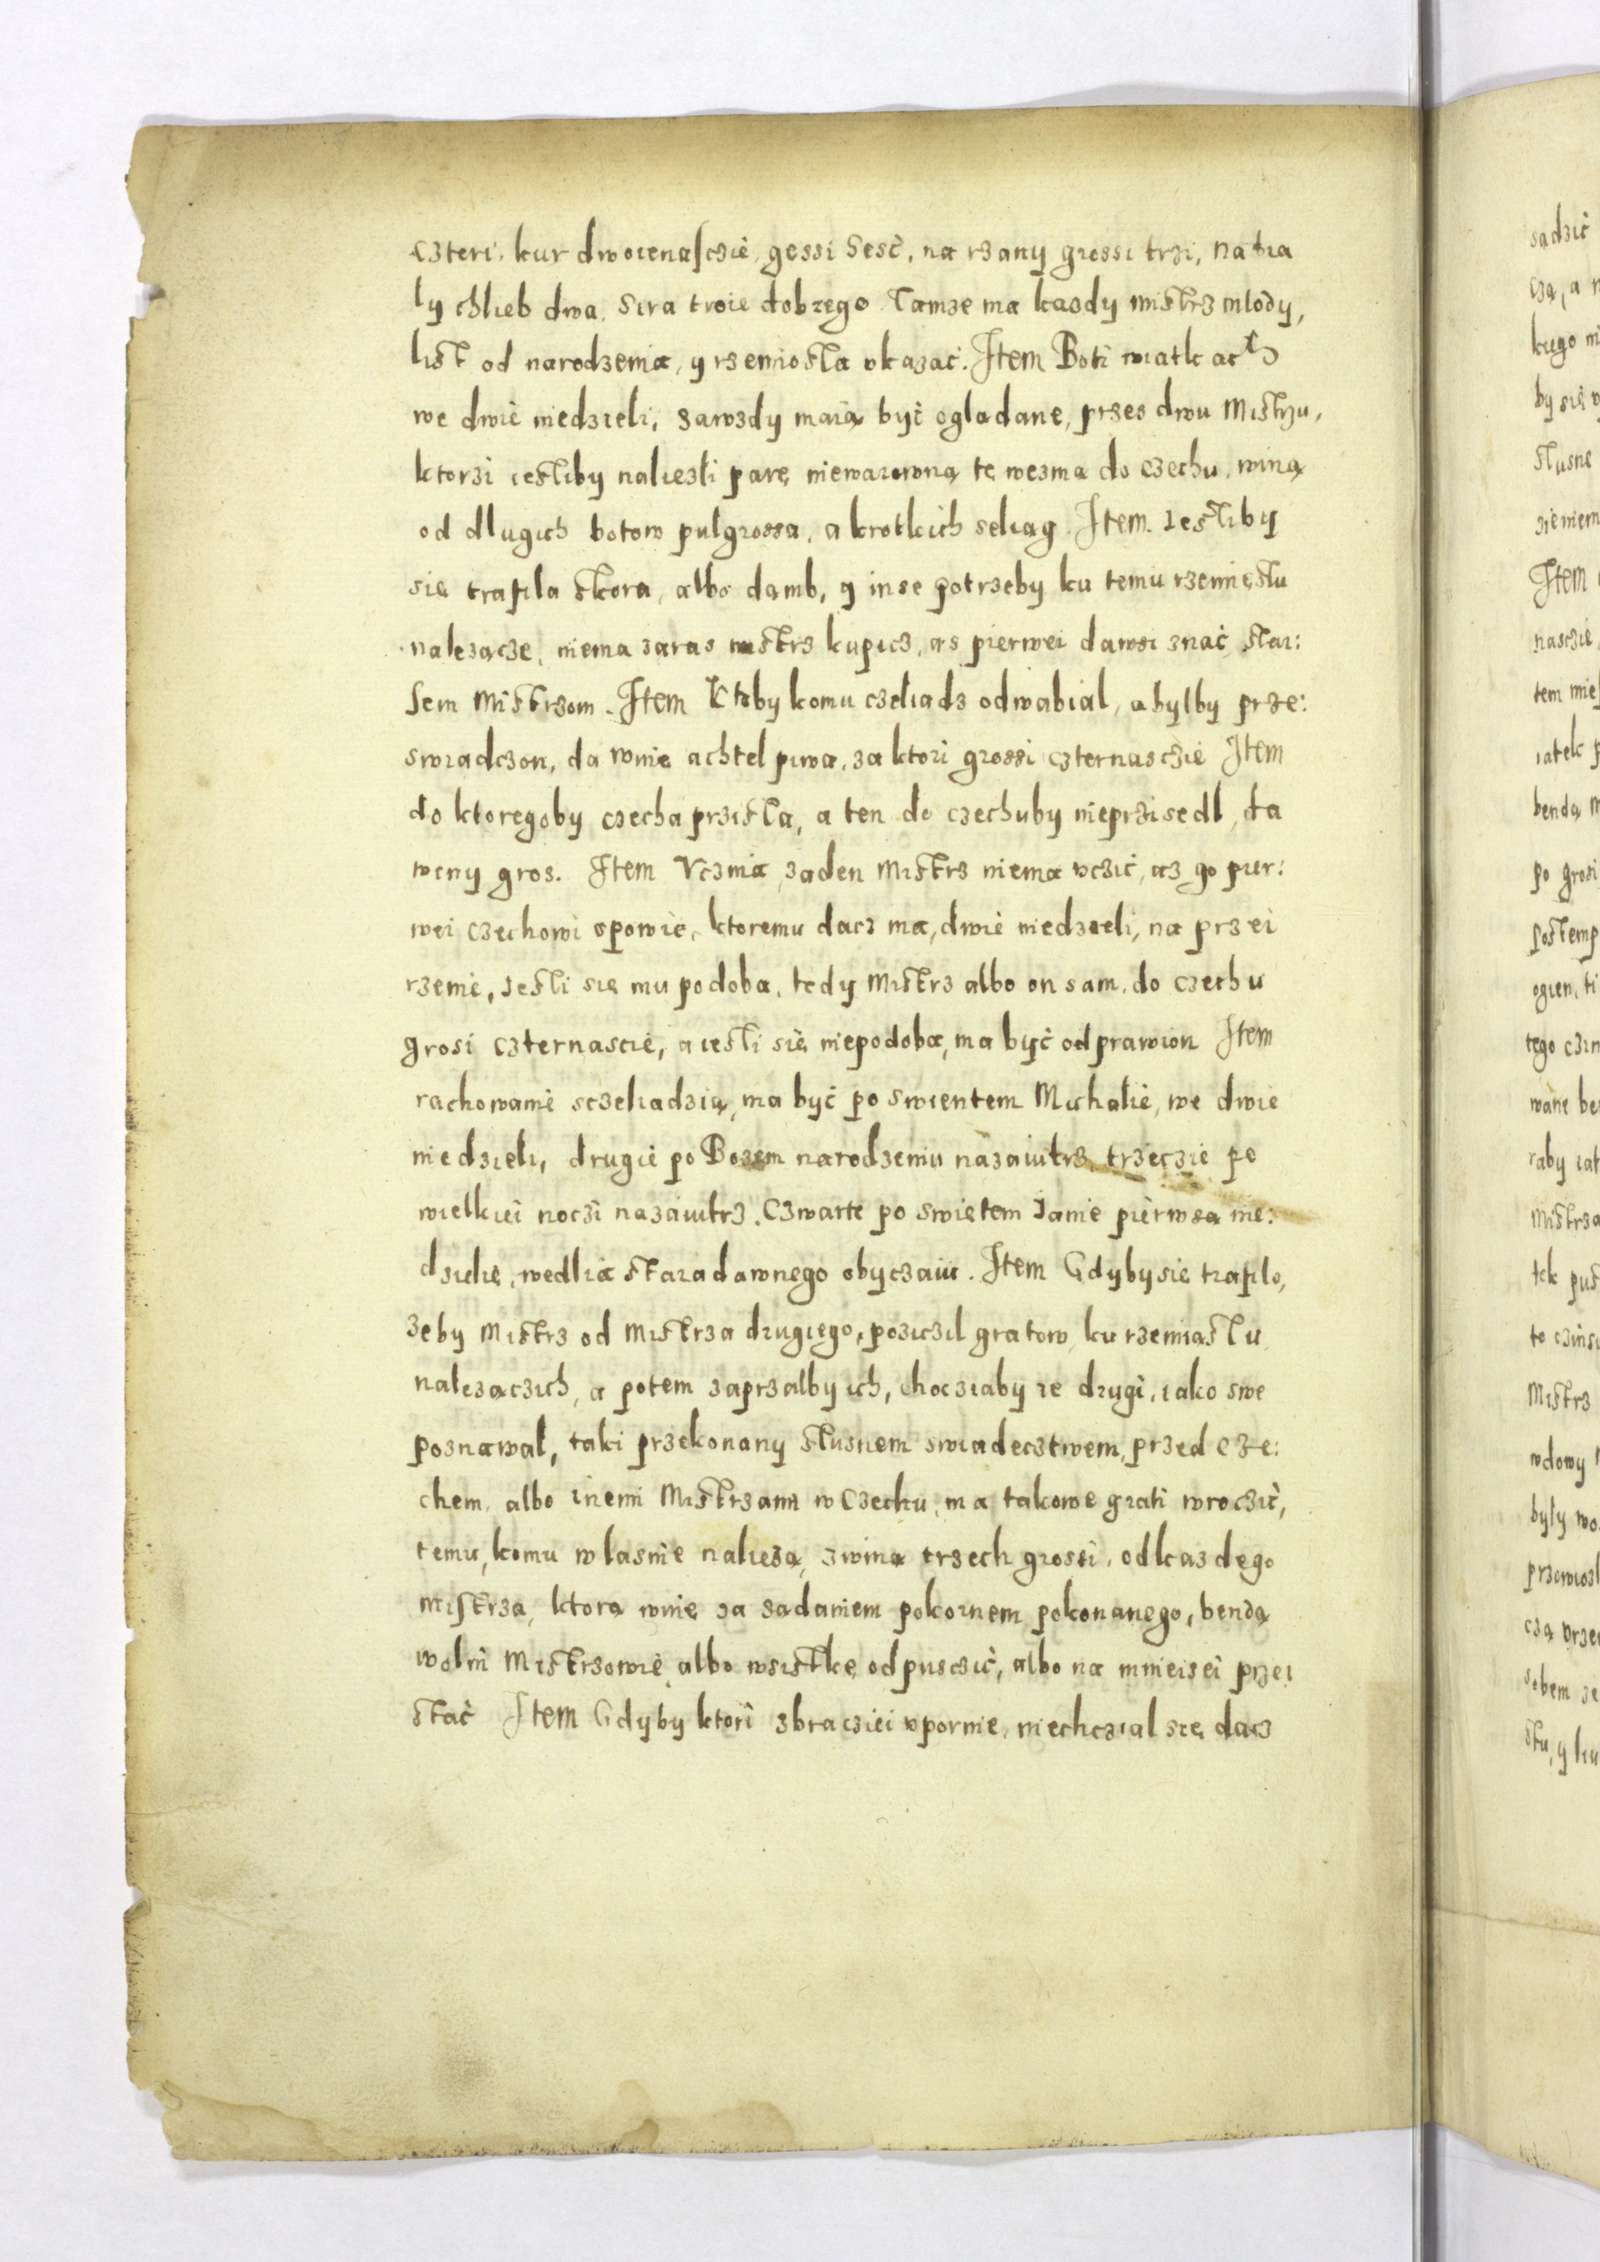 cżteri, kur dwoienascżie, gessi sesć, na rżany grossi trżi, na bia
ly chlieb dwa, sira troie dobrego Tamże ma kasdy mistrz mlody,
list od narodzenia, y rzemiosla vkazać. Item Boti w iatkach
we dwie niedzieli, zawzdy maią być oglądane, przes dwu Mistrzu,
ktorzi iesliby naliezli parę niewarowną tę wezmą do czechu, winą
od dlugich botow pulgrossa, a krotkich seliąg. Item Iesliby
się trafila skora, albo dąmb, y inse potrzeby ku temu rzemięslu
należącze, niema zaras mistrz kupicz, as pierwei dawsi znać star:
sem Mistrzom. Item Ktoby komu czeliadz odwabial, a bylby prze:
swiadczon, da winę achtel piwa, za ktori grossi czternasczie Item
do ktoregoby czecha przisla, a ten do czechuby nieprzisedl, da
winy gros. Item Vcznia, zaden Mistrz niema vczić, az go pier:
wei czechowi opowie, ktoremu dacz ma, dwie niedzieli, na przei
rzenie, Iesli się mu podoba, tedy Mistrz albo on sam, do czechu
grosi czternascie, a iesli się niepodoba, ma być odprawion Item
rachowanie sczeliadzią, ma być po swientem Michalie, we dwie
niedzieli, drugie po Bozem narodzeniu nazaiutrz, trzeczie po
wielkiei noczi nazaiutrz. Czwarte po swiętem Ianie pierwsą nie:
dzielię, wedlia staradawnego obyczaiu. Item Gdyby się trafilo,
zeby Mistrz od Mistrza drugiego, poziczil gratow, ku rzemiąslu
należączich, a potem zaprzalby ich, chocziaby ie drugi, iako swe
poznawal, taki przekonany slusnem swiadecztwem, przed cze:
chem, albo inemi Mistrzami w Czechu, ma takowe grati wroczić,
temu, komu wlasnie naliezą, zwiną trzech grossi, odkazdego
mistrza, ktorą winę za ządaniem pokornem pokonanego, bendą
wolni Mistrzowie, albo wsistkę odpusczić, albo na mnieisei prze
stać Item Gdyby ktori zbracziei vpornie, niechcial się dacz